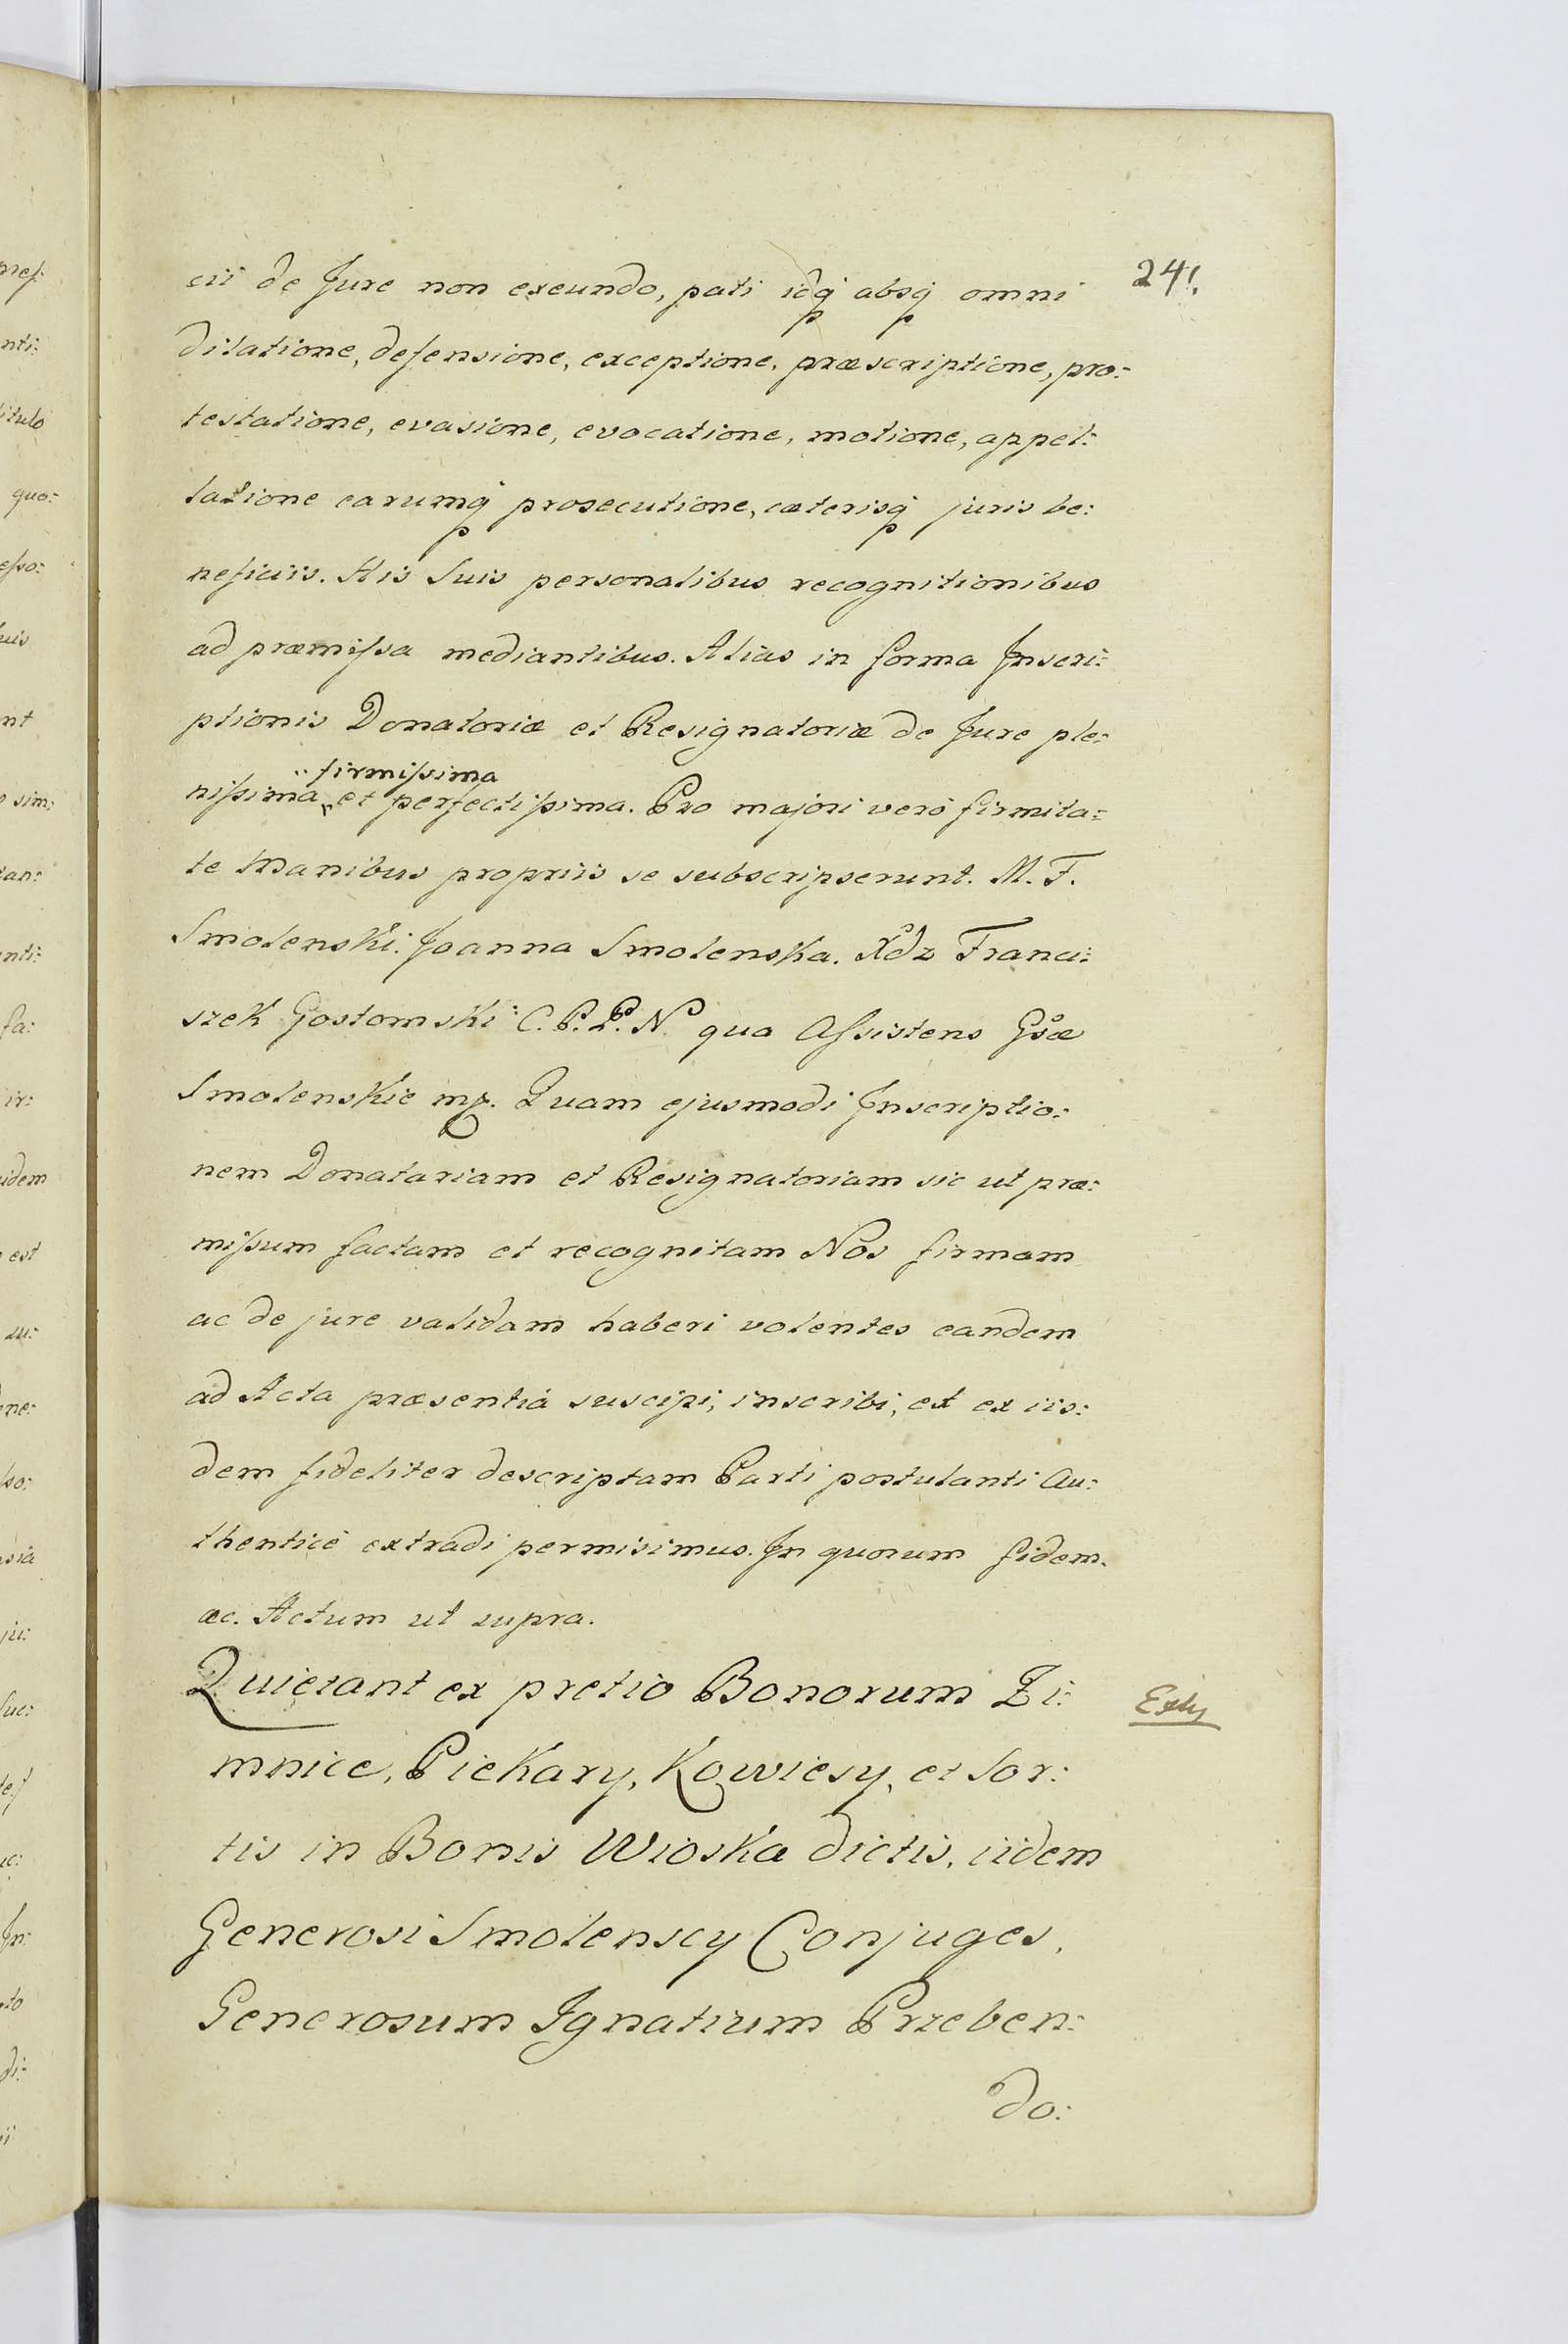 241.
cii de Jure non exeundo, pati idq̃ absq̃ omni
dilatione, defensione, exceptione, præscriptione, pro:
testatione, evasione, evocatione, motione, appel:
latione earumq̃ prosecutione, cæterisq̃ juris be:
neficiis. His Suis personalibus recognitionibus
ad præmiſsa mediantibus. Alias in forma Inscri:
ptionis Donatoriæ et Resignatoriæ de Jure ple:
firmiſsima
niſsima et perfectiſsima. Pro majori verò firmita:
te Manibus propriis se subscripserunt. M. F.
Smolenski. Joanna Smolenska. Xdz Franci:
szek Gostomski C. P. P. N. qua Aſsistens Gsæ
Smolenskie mp. Quam ejusmodi Inscriptio:
nem Donatariam et Resignatoriam sic ut præ:
miſsum factam et recognitam Nos firmam
ac de jure validam haberi volentes eandem
ad Acta præsentia suscipi, inscribi, et ex iis:
dem fideliter descriptam Parti postulanti Au:
thenticè extradi permisimus. In quorum fidem.
æc. Actum ut supra.
Quietant ex pretio Bonorum Zi:
mnice, Piekary, Kowiesy, et Sor:
tis in Bonis Wioska dictis, iidem
Generosi Smolenscy Conjuges,
Generosum Ignatium Przeben:
do: